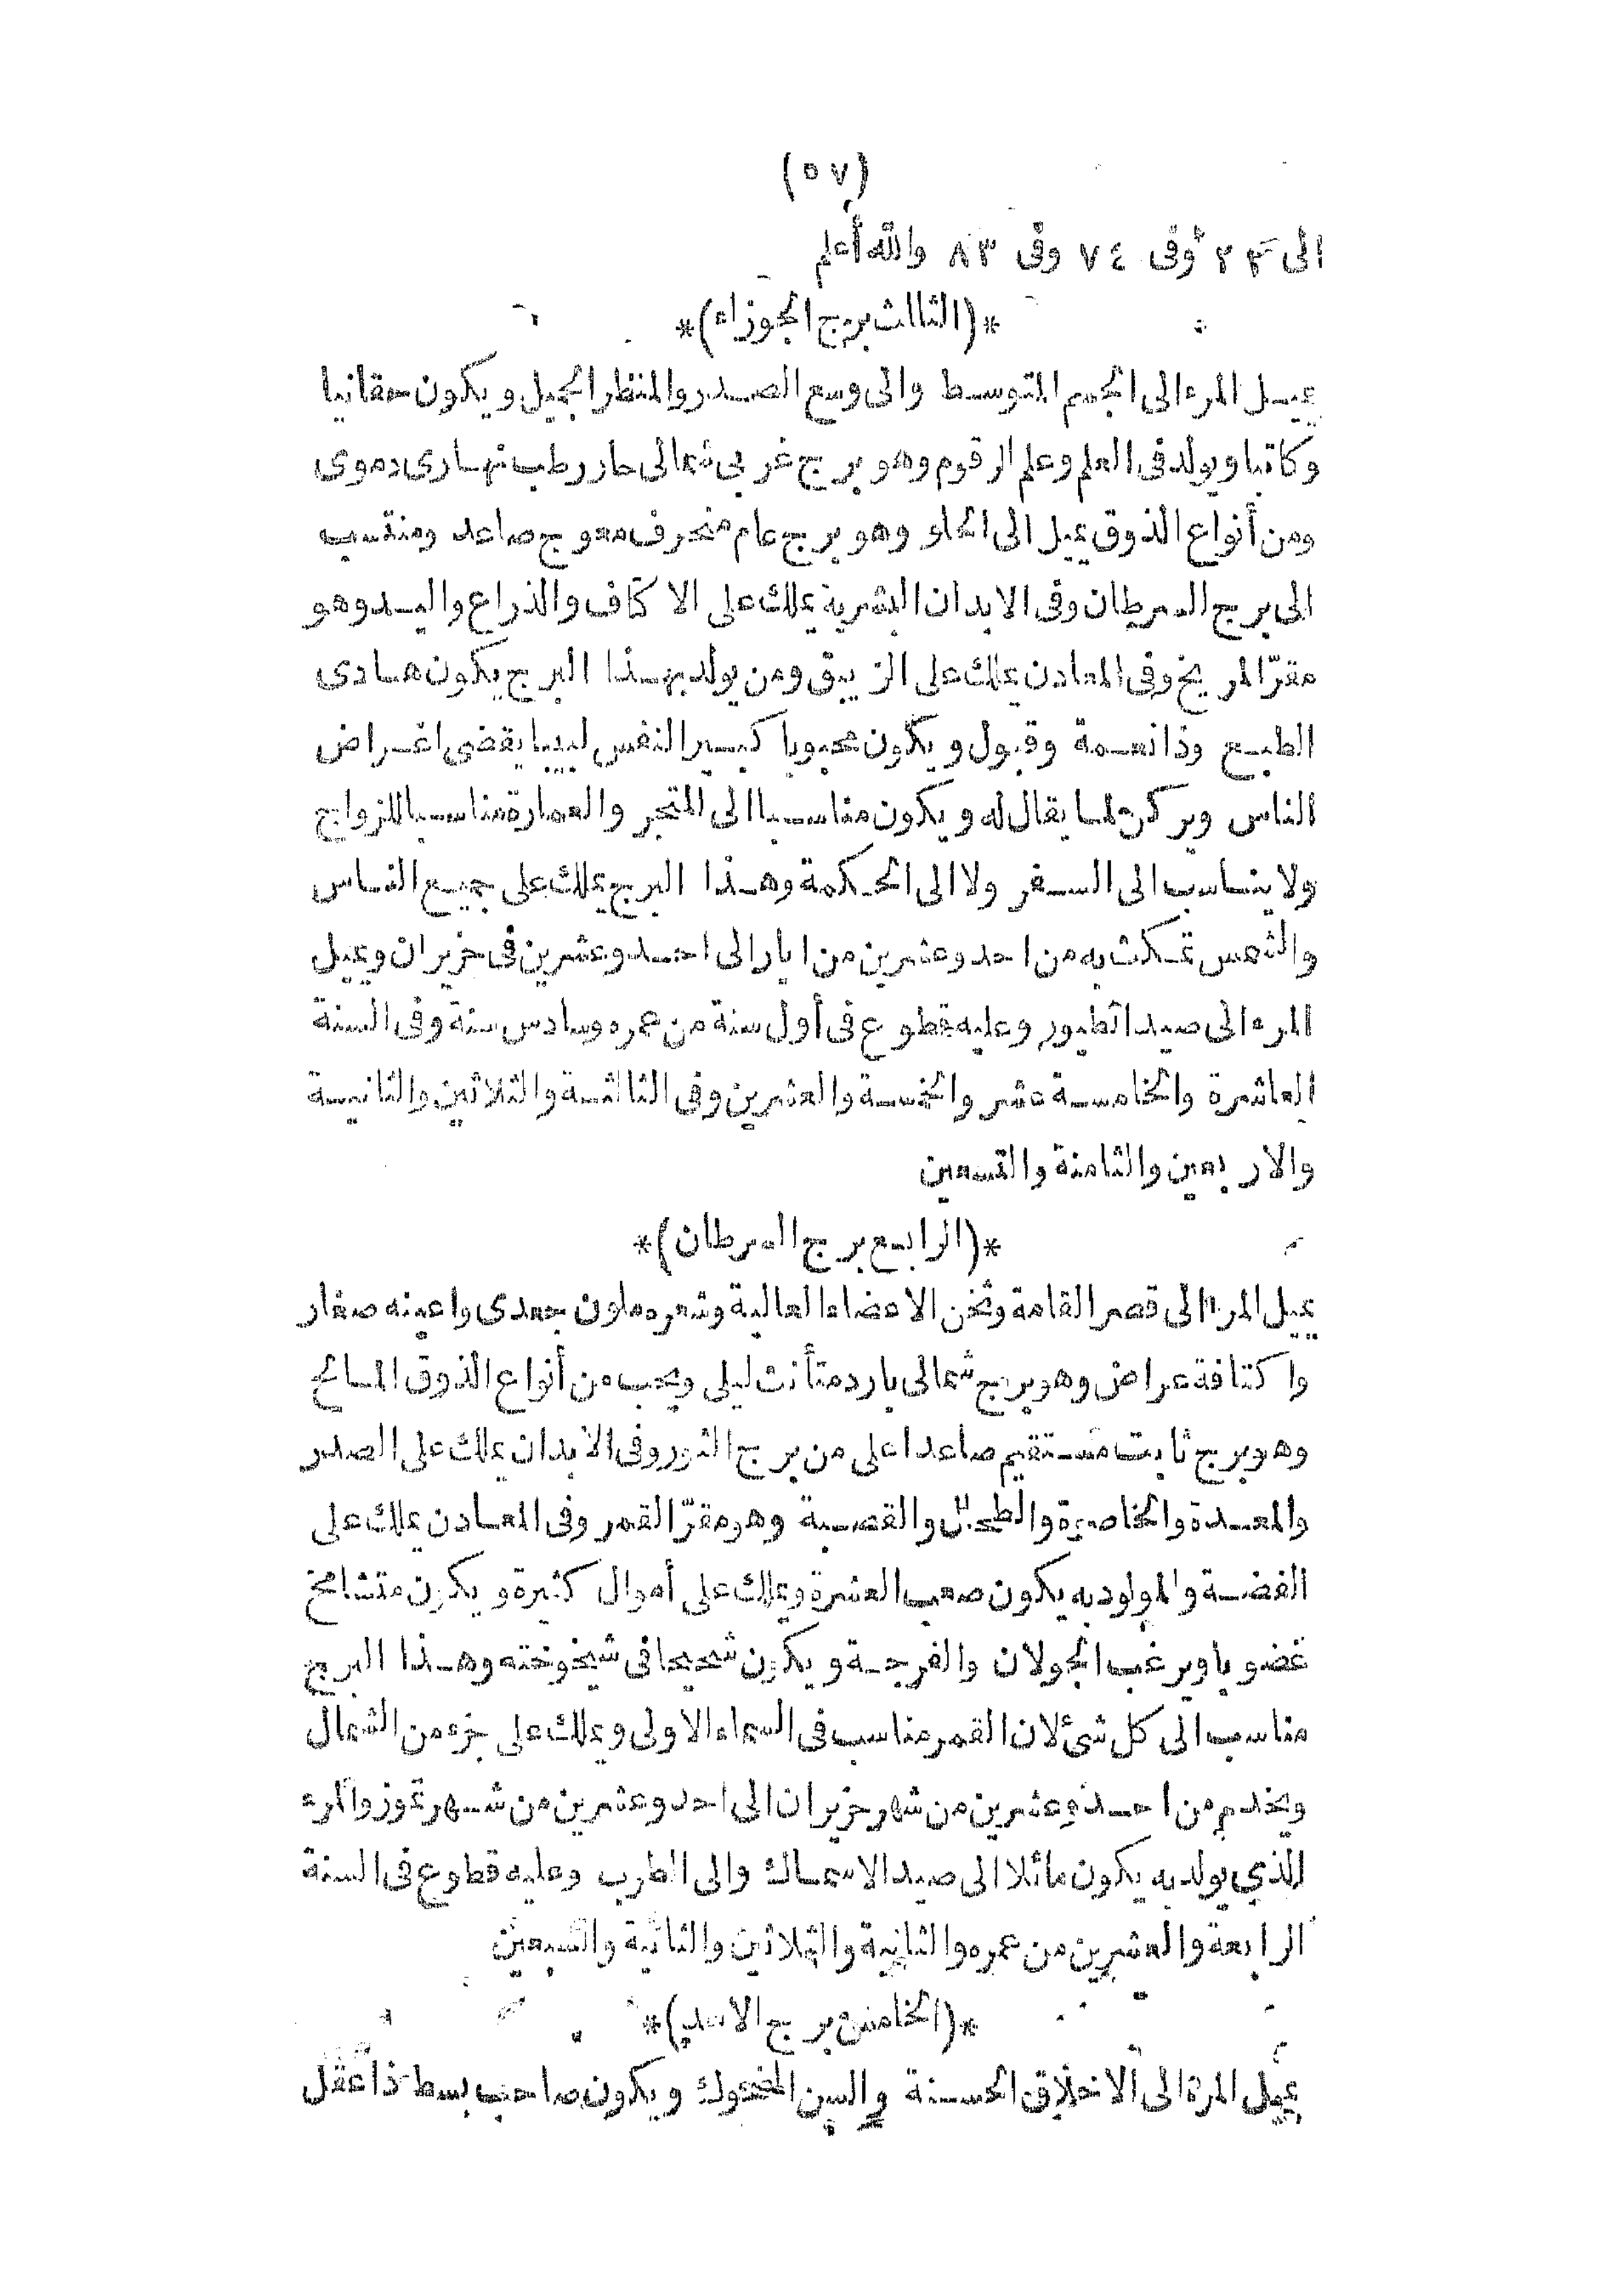 (٥٧)
الى ٣٣ وفى ٧٤ وفى ٨٣ والله أعلم
*(الثالث برج الجوزاء)*
يميل المرء الى الجسم المتوسط والى وسع الصدر والمنظر الجميل و يكون حقانيا
وكاتبا ويولد فى العلم وعلم الرقوم وهو برج غربى شمالى حار رطب نهارى دموى
ومن أنواع الذوق يميل الى الحلو وهو برج عام منحرف معوج صاعد ومنتسب
الى برج السرطان وفى الابدان البشرية يملك على الاكتاف والذراع واليد وهو
مقرّ المريخ وفى المعادن يملك على الزيبق ومن يولد بهذا البرج يكون هادى
الطبع وذا نعمة وقبول و يكون محبوبا كبير النفس لبيبا يقضى اغراض
الناس ويركن لما يقال له و يكون مناسبا الى المتجر والعمارة مناسبا للزواج
ولا يناسب الى السفر ولا الى الحكمة وهذا البرج يملك على جميع الناس
والشمس تمكث به من احد وعشرين من ايار الى احد وعشرين فى حزيران ويميل
المرء الى صيد الطيور وعليه قطوع فى أول سنة من عمره وسادس سنة وفى السنة
العاشرة والخامسة عشر والخمسة والعشرين وفى الثالثة والثلاثين والثانية
والاربعين والثامنة والتسعين
*(الرابع برج السرطان)*
يميل المرء الى قصر القامة وثخن الاعضاء العالية وشعره ملون جعدى واعينه صغار
واكتافة عراض وهو برج شمالى بارد متأنث ليلى ويحب من أنواع الذوق المالح
وهو برج ثابت مستقيم صاعد اعلى من برج الثور وفى الابدان يملك على الصدر
والمعدة والخاصرة والطحال والقصبة وهو مقرّ القمر وفى المعادن يملك على
الفضة والمولود به يكون صعب العشرة ويملك على أموال كثيرة و يكون متشامخ
غضوبا ويرغب الجولان والفرجة و يكون شحيحا فى شيخوخته وهذا البرج
مناسب الى كل شئ لان القمر مناسب فى السماء الاولى ويملك على جزء من الشمال
ويخدم من احد وعشرين من شهر حزيران الى احد وعشرين من شهر تموز والمرء
الذي يولد به يكون مائلا الى صيد الاسماك والى الطرب وعليه قطوع فى السنة
الرابعة والعشرين من عمره والثانية والثلاثين والثانية والسبعين
*(الخامس برج الاسد)*
يميل المرء الى الاخلاق الحسنة والسن الضحوك و يكون صاحب بسط ذا عقل